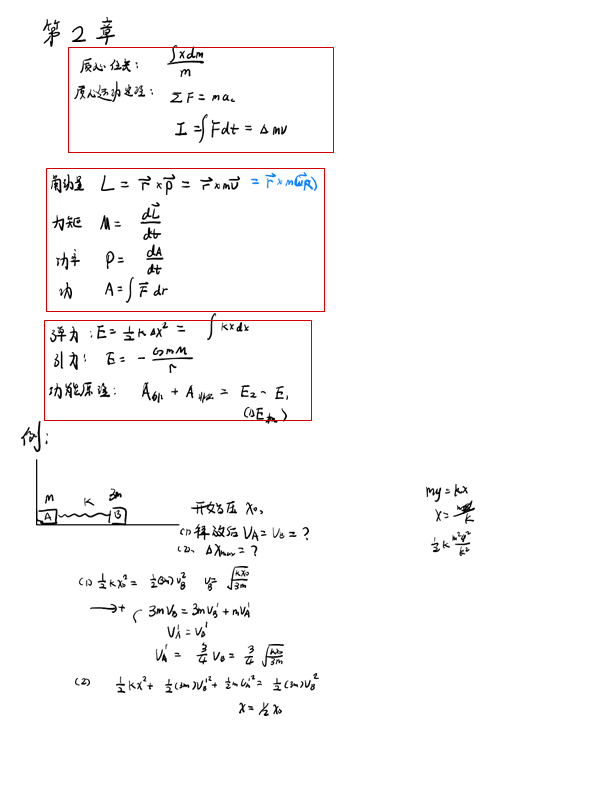 第 2 章
质心位矢： ∫xdm / m
质心运动定理： ΣF = ma_c
I = ∫Fdt = Δmv
角动量 L = r⃗ × p⃗ = r⃗ × mv⃗ = r⃗ × m(ωR)
力矩 M = dL⃗ / dt
功率 P = dA / dt
功 A = ∫ F⃗ dr
弹力：E = ½ k Δx² = ∫ kx dx
引力： E = - GmM / r
功能原理： A外 + A非保 = E₂ - E₁
(ΔE机)
例：
m 3m
A k B
开始压 x₀,
(1) 释放后 V_A = V_B = ?
(2). Δx_max = ?
mg = kx
x = / k
½ k m²g² / k²
(1) ½ k x₀² = ½ (3m) v_B² v_B = √(kx₀ / 3m)
→+ 3m v_B = 3m v_B' + m v_A'
v_A' = v_B'
v_A' = ¾ v_B = ¾ √(kx₀ / 3m)
(2) ½ kx² + ½ (3m) v_B'² + ½ m v_A'² = ½ (3m) v_B²
x = ½ x₀